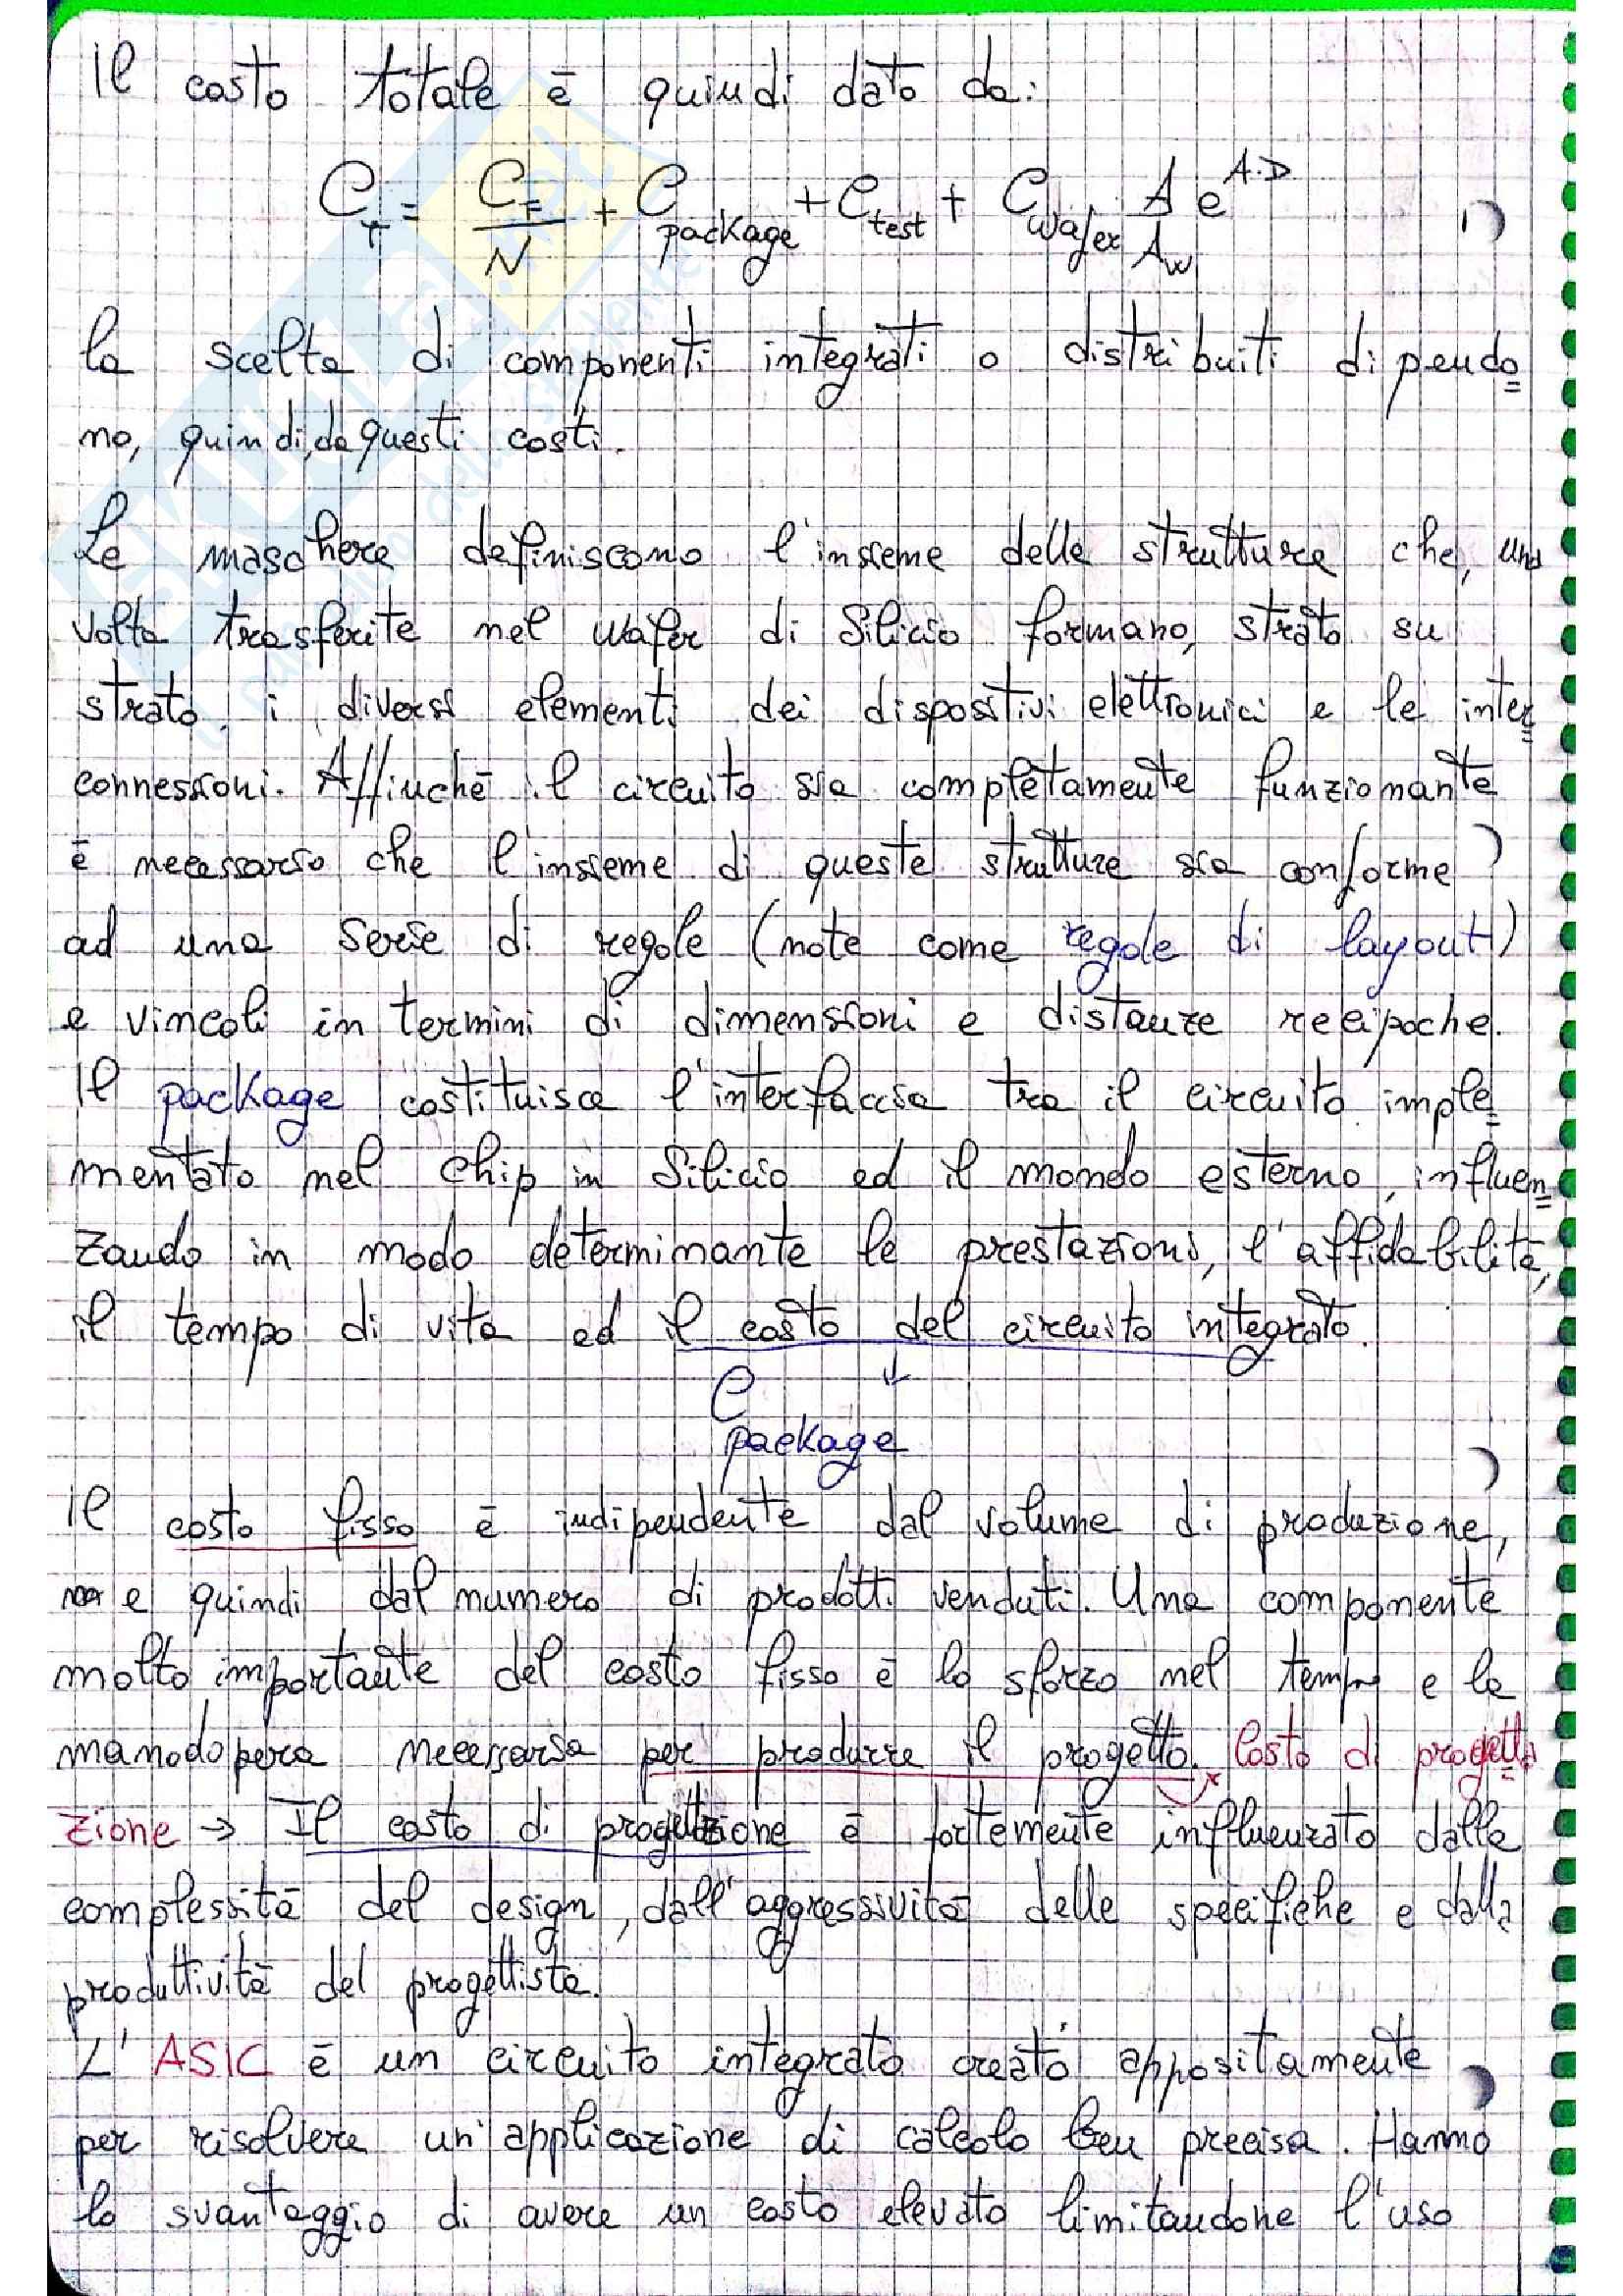 Il costo totale è quindi dato da:
C_T = C_F/N + C_package + C_test + C_wafer A/A_w e^{A·D}
la scelta di componenti integrati o distribuiti dipendo=
no, quindi, da questi costi.
Le maschere definiscono l'insieme delle strutture che, una
volta trasferite nel wafer di Silicio formano, strato su
strato, i diversi elementi dei dispositivi elettronici e le inter=
connessioni. Affinché il circuito sia completamente funzionante
è necessario che l'insieme di queste strutture sia conforme
ad una serie di regole (note come regole di layout)
e vincoli in termini di dimensioni e distanze recipoche.
Il package costituisce l'interfaccia tra il circuito imple=
mentato nel chip in Silicio ed il mondo esterno, influen=
zando in modo determinante le prestazioni, l'affidabilità,
il tempo di vita ed il costo del circuito integrato.
↓
C_package
Il costo fisso è indipendente dal volume di produzione,
e quindi dal numero di prodotti venduti. Una componente
molto importante del costo fisso è lo sforzo nel tempo e la
manodopera necessaria per produrre il progetto. Costo di progetta
zione → Il costo di progettazione è fortemente influenzato dalla
complessità del design, dall'aggressività delle specifiche e dalla
produttività del progettista.
L'ASIC è un circuito integrato creato appositamente
per risolvere un'applicazione di calcolo ben precisa. Hanno
lo svantaggio di avere un costo elevato limitandone l'uso